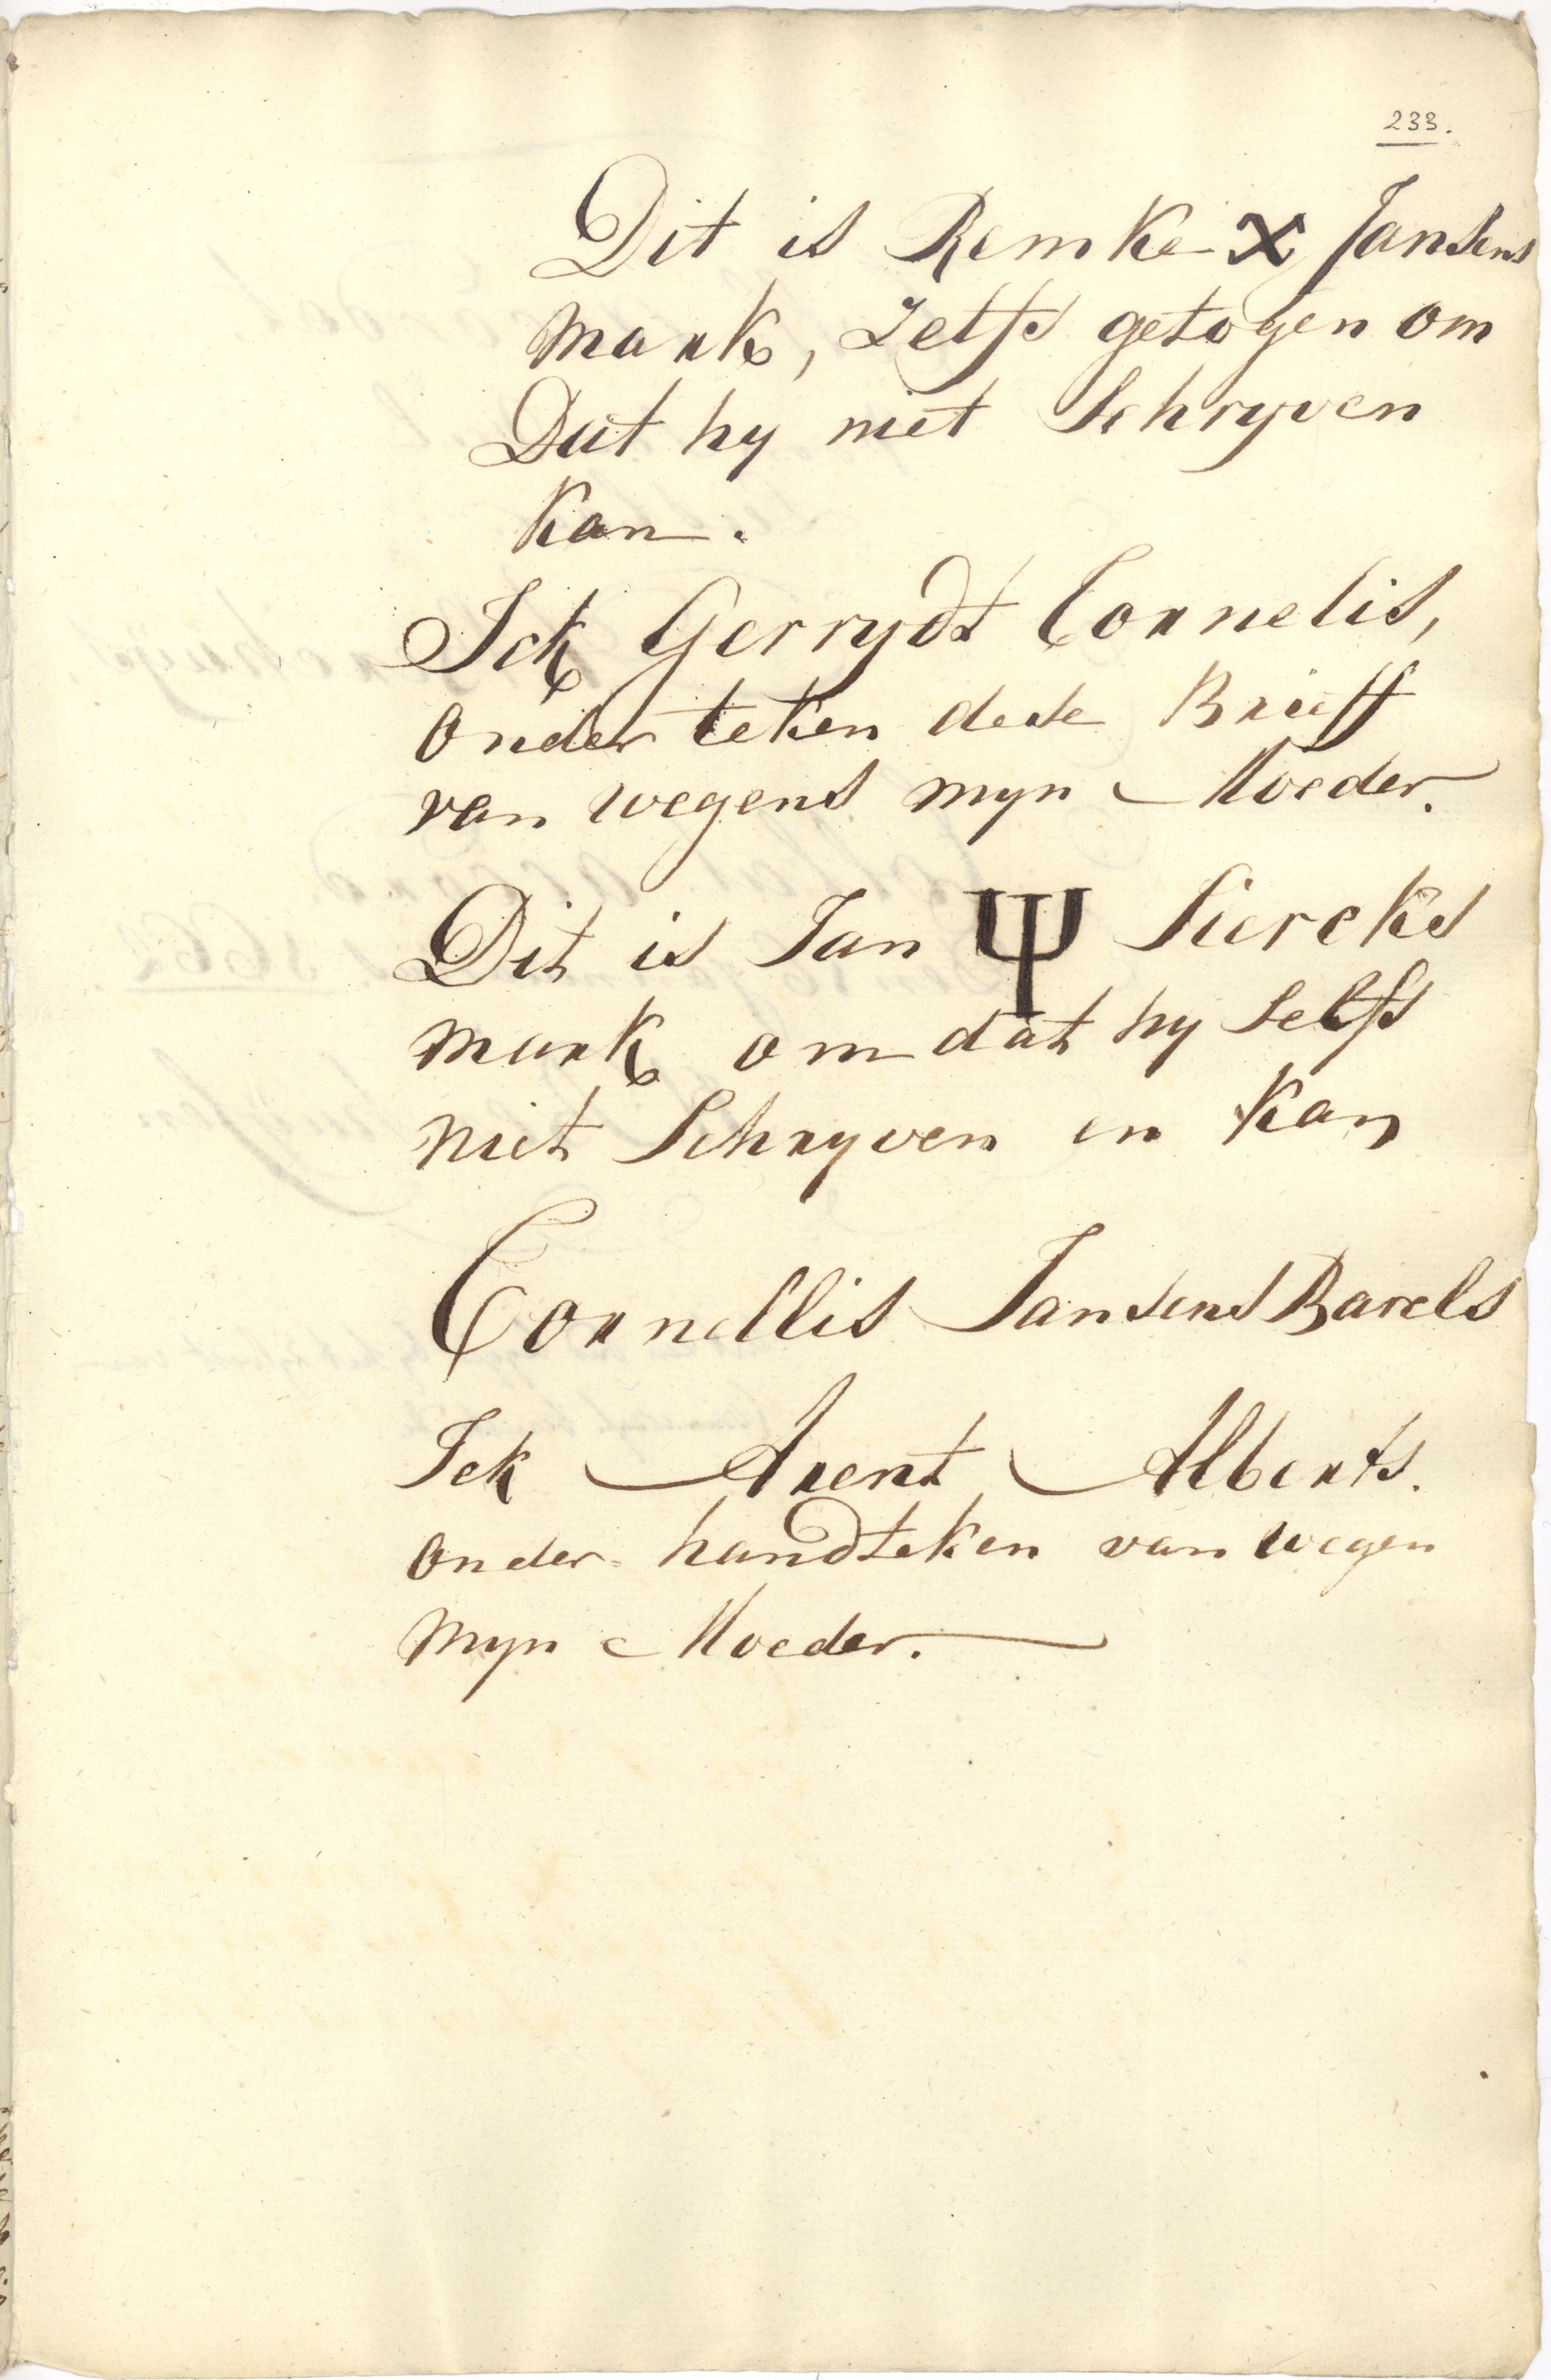 233.
Dit is Remke X Jansens
mark, Zelfs getogen om
Dat hy niet Schryven
Kan.
Ick Gerrydt Cornelis,
onder teken dese Brieff
van wegens myn Moeder.
Dit is Jan Ψ Siercks
mark om dat hy Selfs
niet Schryven en Kan
Cornellis Jansens Barels
Ick Arent Alberts.
onder handteken van wegen
myn Moeder.